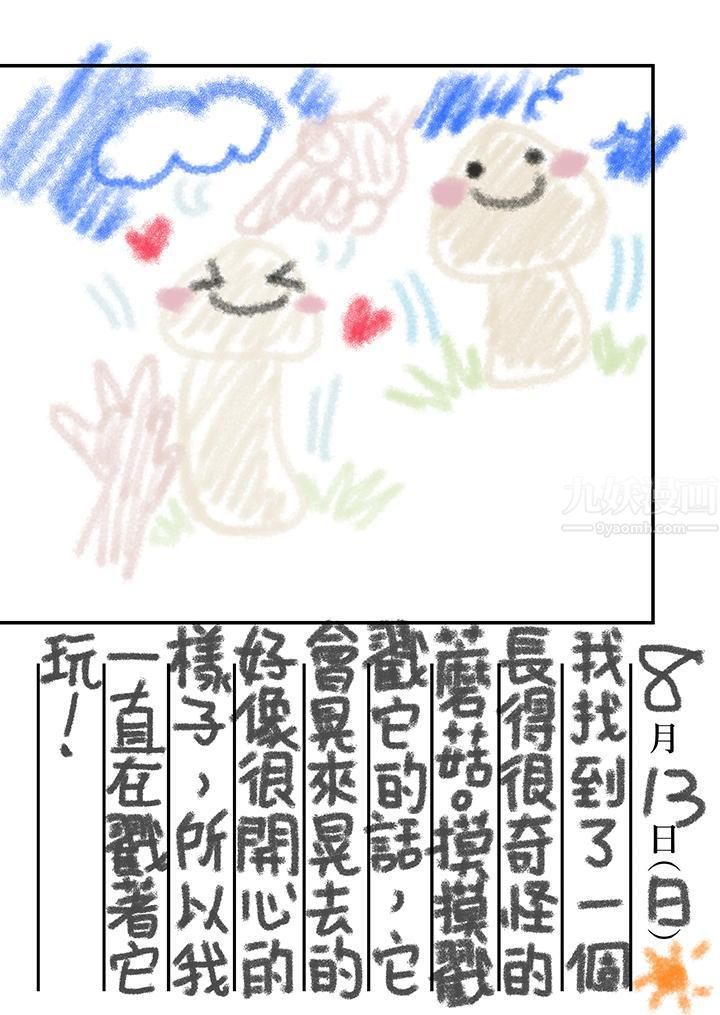 8月13日(日)
我找到了一個
長得很奇怪的
蘑菇。摸摸戳
戳它的話，它
會晃來晃去的
好像很開心的
樣子，所以我
一直在戳著它
玩！
九妖漫画
9yaomh.com